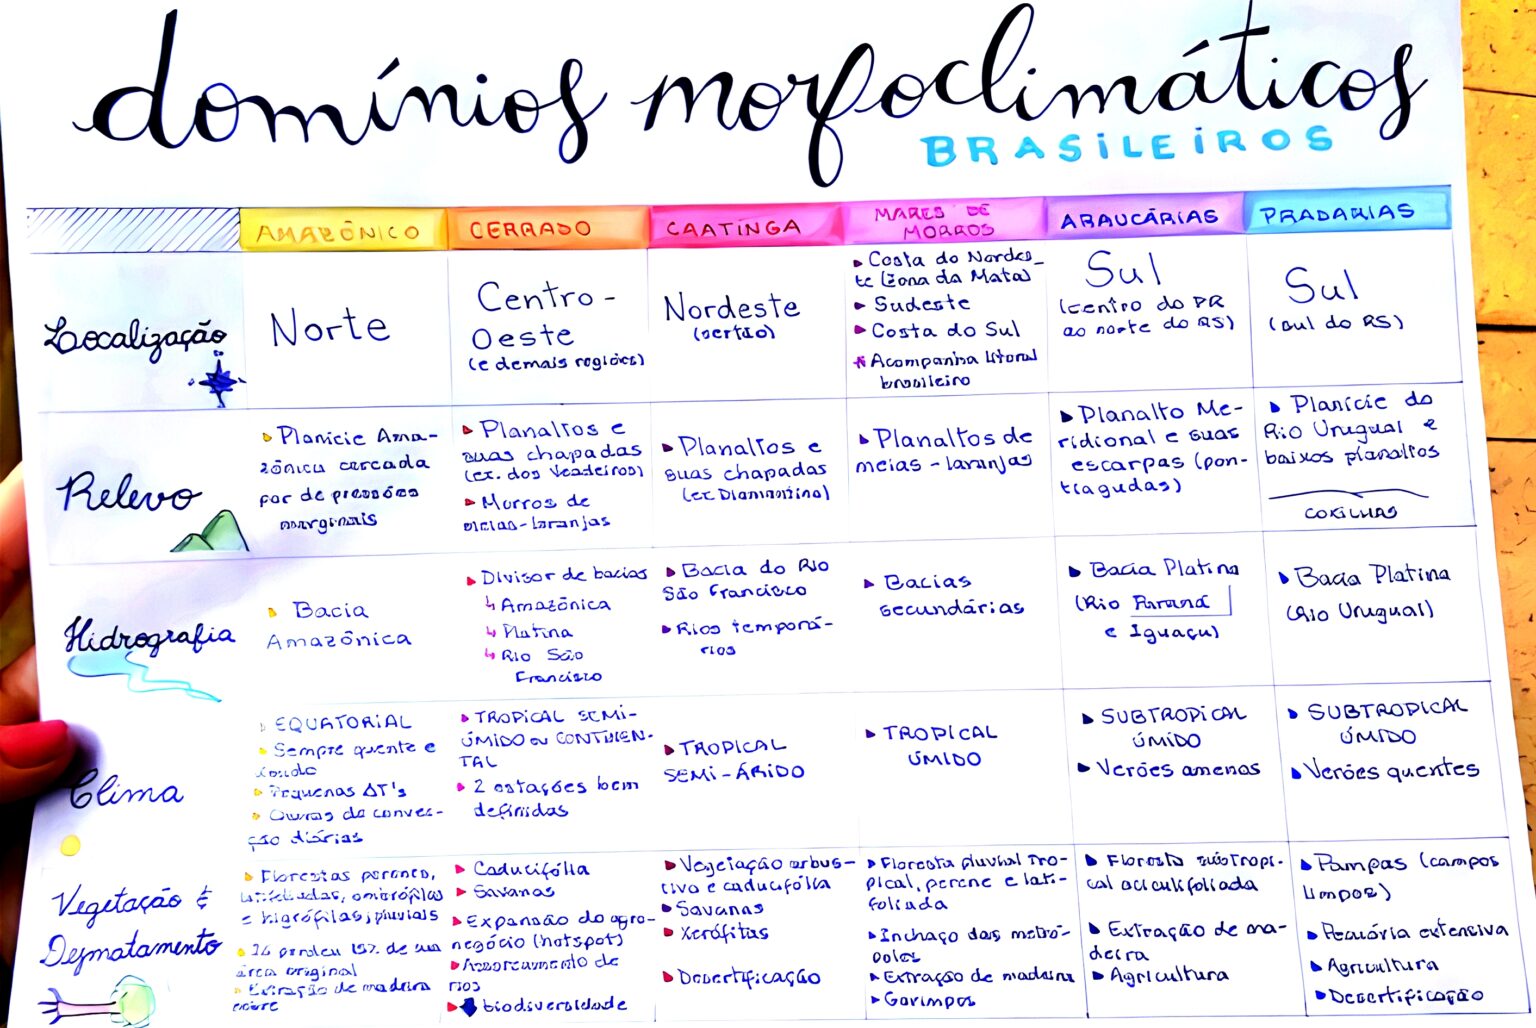 domínios morfoclimáticos
BRASILEIROS
AMAZÔNICO
CERRADO
CAATINGA
MARES DE
MORROS
ARAUCÁRIAS
PRADARIAS
Localização
Norte
Centro-
Oeste
(e demais regiões)
Nordeste
(sertão)
Costa do Nordes_
te (Zona da Mata)
Sudeste
Costa do Sul
* Acompanha litoral
brasileiro
Sul
(centro do PR
ao norte do RS)
Sul
(sul do RS)
Relevo
Planície Ama-
zônica cercada
por depressões
marginais
Planaltos e
suas chapadas
(ex. dos Veadeiros)
Morros de
meias-laranjas
Planaltos e
suas chapadas
(ex Diamantina)
Planaltos de
meias-laranjas
Planalto Me-
ridional e suas
escarpas (pon-
tiagudas)
Planície do
Rio Uruguai e
baixos planaltos
COXILHAS
Hidrografia
Bacia
Amazônica
Divisor de bacias
↳ Amazônica
↳ Platina
↳ Rio São
Francisco
Bacia do Rio
São Francisco
Rios temporá-
rios
Bacias
secundárias
Bacia Platina
(Rio Paraná
e Iguaçu)
Bacia Platina
(Rio Uruguai)
Clima
EQUATORIAL
Sempre quente e
Pequenas ΔT's
Chuvas de convec-
ção diárias
TROPICAL SEMI-
ÚMIDO ou CONTINEN-
TAL
2 estações bem
definidas
TROPICAL
SEMI-ÁRIDO
TROPICAL
ÚMIDO
SUBTROPICAL
ÚMIDO
Verões amenos
SUBTROPICAL
ÚMIDO
Verões quentes
Vegetação &
Desmatamento
Florestas perenes,
latifoliadas, ombrófilas
e higrófilas, pluviais
perdeu 15% de sua
área original
Extração de madeira
nobre
Caducifólia
Savanas
Expansão do agro-
negócio (hotspot)
Assoreamento de
rios
↓ biodiversidade
Vegetação arbus-
tiva e caducifólia
Savanas
Xerófitas
Desertificação
Floresta pluvial tro-
pical, perene e lati-
foliada
Inchaço das metró-
poles
Extração de madeira
Garimpos
Floresta subtropi-
cal aciculifoliada
Extração de ma-
deira
Agricultura
Pampas (campos
limpos)
Pecuária extensiva
Agricultura
Desertificação